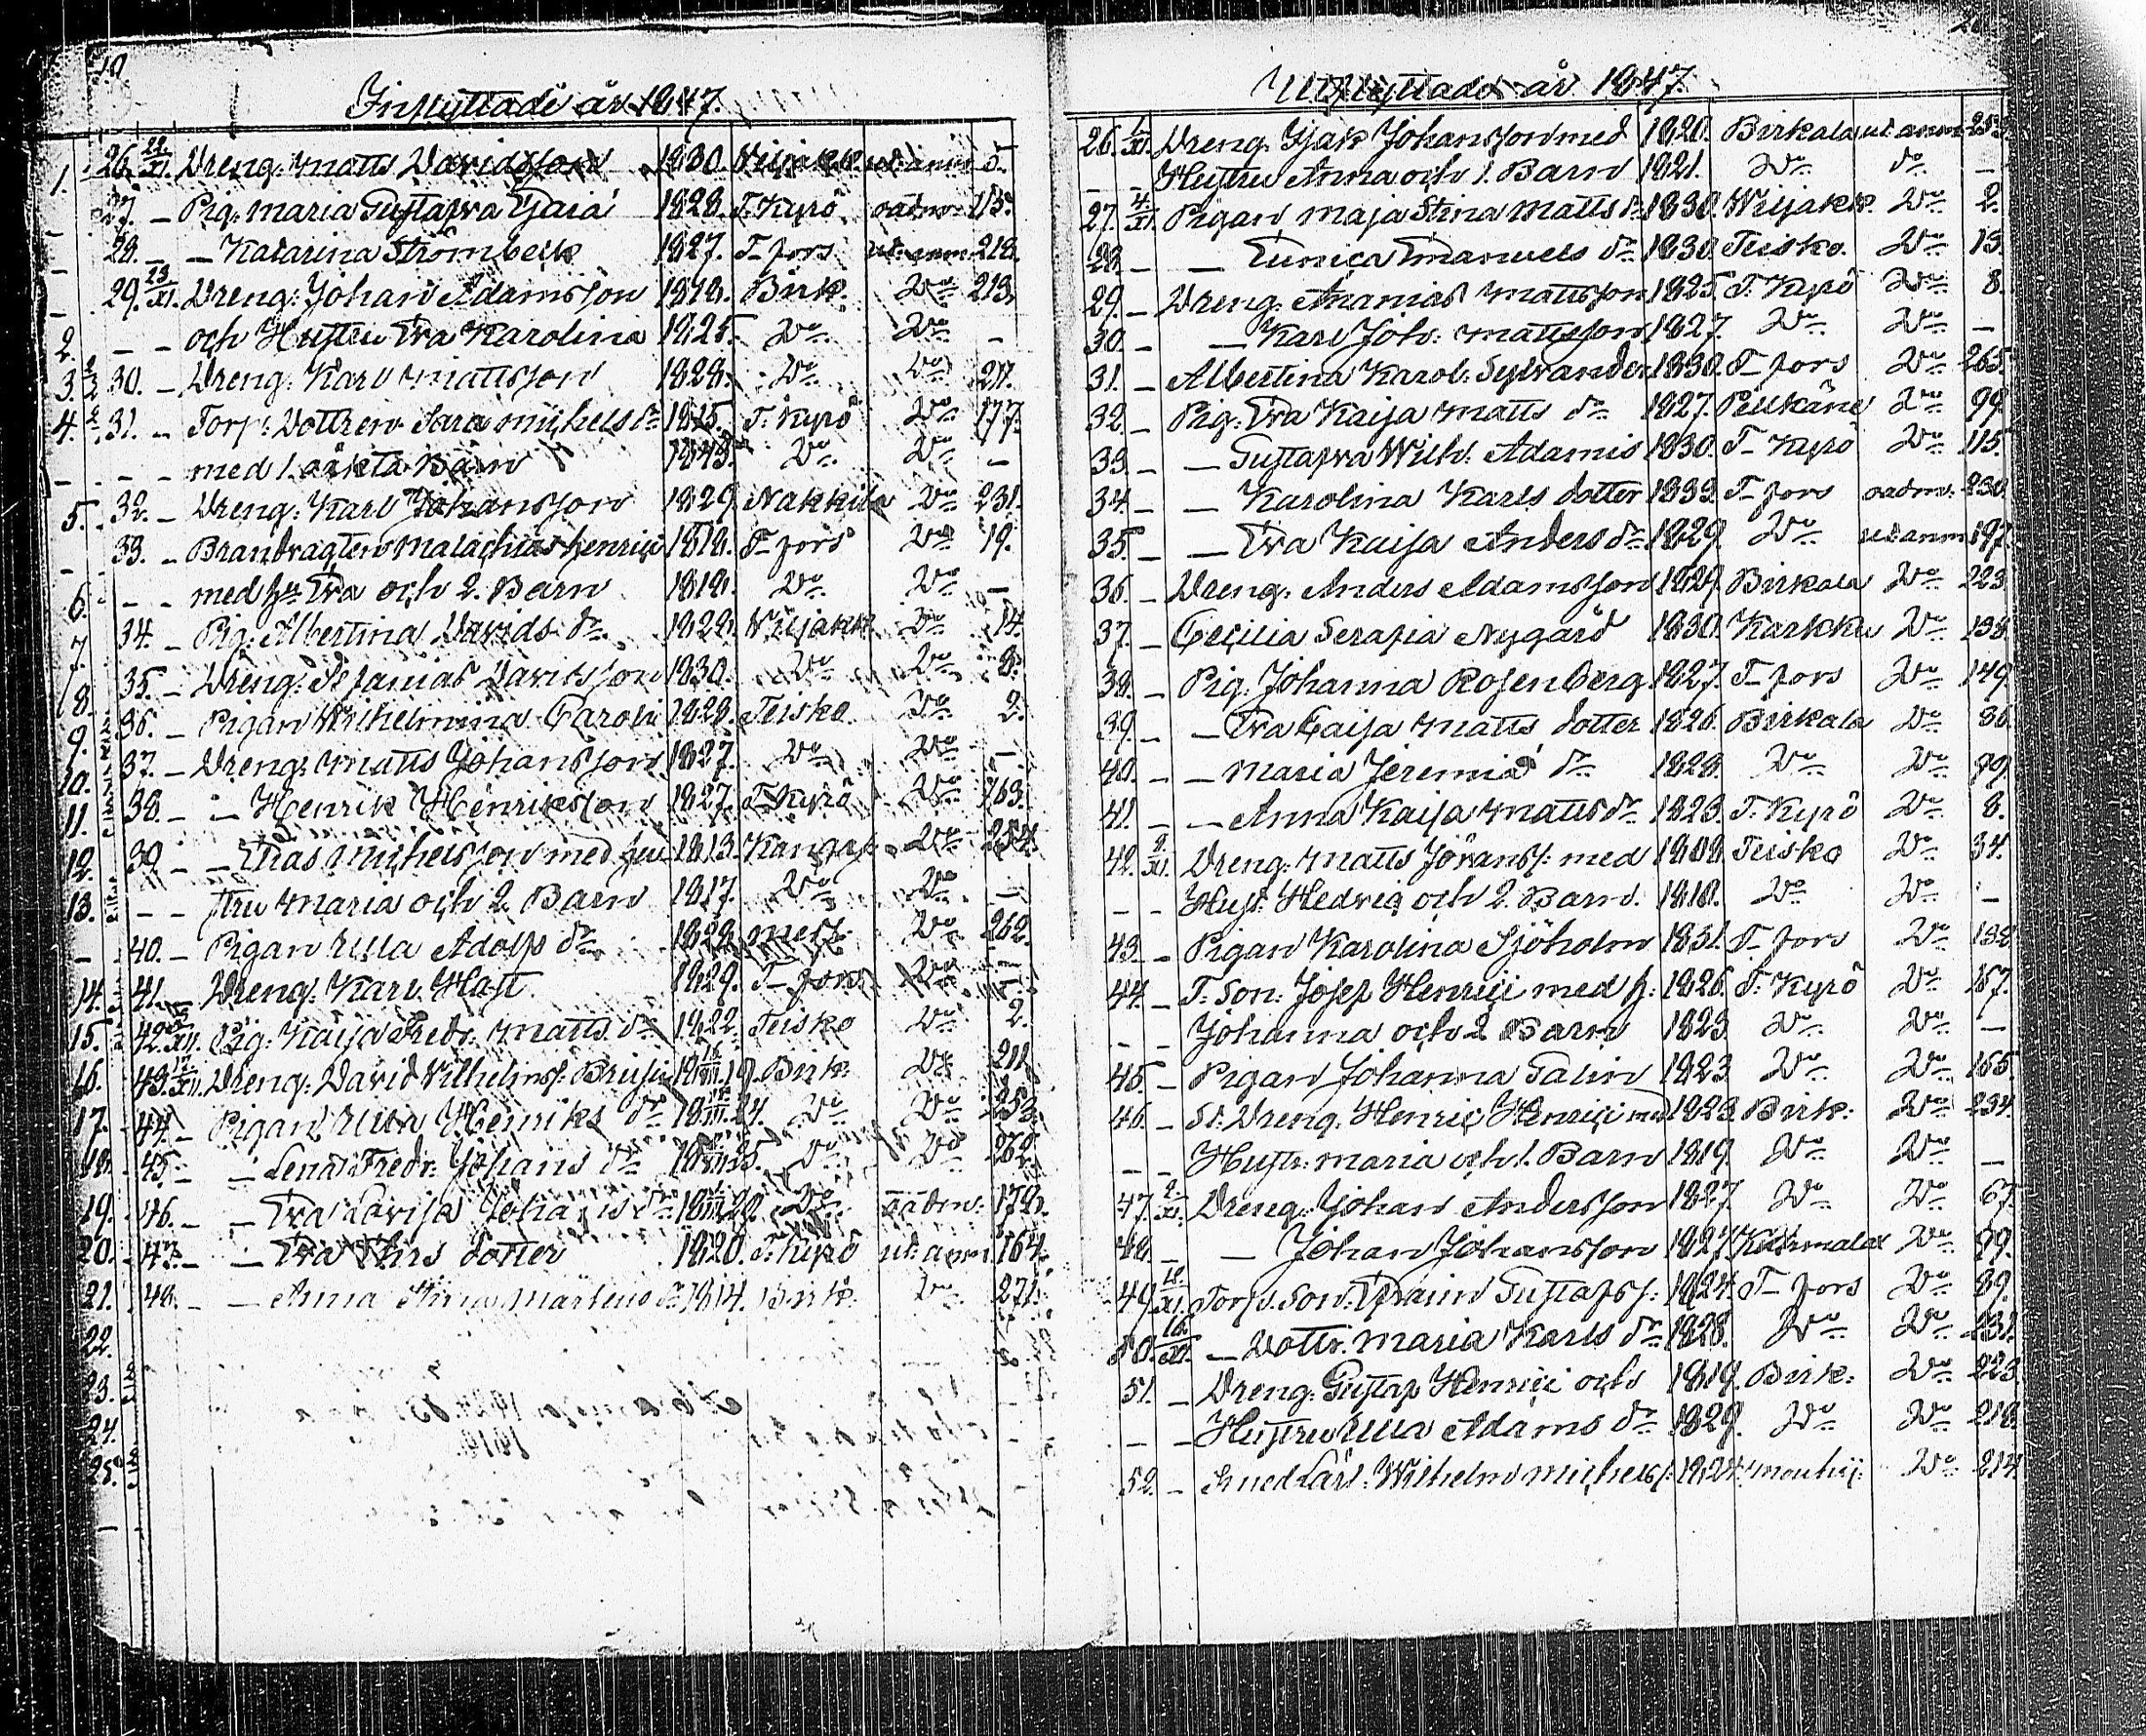 Inflyttade år 1847.
26. 22/XI. Dreng: Matts Davidsson 1830. Wiljakk. ut. anm 5.
27. — Pig: Maria Gustafva Gaia 1828. T. Kyrö oadm. 115.
28. — — Katarina Strömbeck 1827. T-fors ut. anm. 218.
29. 23/XI. Dreng: Johan Adamsson 1818. Birk. Do 213.
— — och Hustru Eva Karolina 1825. Do Do —
30. — Dreng: Karl Mattsson 1828. Do Do 217.
31. — Torp: Dottren Sara Michels dr 1815. T. Kyrö Do 177.
— — med 1. oäkta Barn 1843. Do Do —
32. — Dreng: Karl Johansson 1829. Nakkila Do 231.
33. — Brandvagten Malachias Henrici 1818. T-fors Do 19.
— — med hu Eva och 2. Barn 1818. Do Do —
34. — Pig: Albertina Davids dr 1828. Wiljakk. Do 14.
35. — Dreng: Sefanias Davidsson 1830. Do Do 8.
36. — Pigan Wilhelmina Caroli 1828. Teisko Do 2.
37. — Dreng: Matts Johansson 1827. Do Do —
38. — — Henrik Henriksson 1827. T. Kyrö Do 163.
39. — — Elias Michelsson med hu- 1813. Kangas. Do 254.
— — stru Maria och 2 Barn 1817. Do Do —
40. — Pigan Ulla Adolfs dr 1828. Mess. Do 262.
41. — Dreng: Karl Hast 1829. T-fors Do —
42. XII. Pig: Kaisa Fredr. Matts dr 1822. Teisko Do 2.
43. XII. Dreng: David Vilhelmsf. 19. Birk: Do 211.
44. — Pigan Ulla Henriks dr 24. Do Do 253.
45. — — Lena Fredr. Johans dr 25. Do Do 262.
46. — — Eva Lovisa Johans dr 28. Do oadm: 178.
47. — — Eva dotter 1820. T. Kyrö ut. anm 164.
48. — — Anna Stina Mårtens dr 1814. Birk. Do 271.
Utflyttade år 1847.
26. 1/XI. Dreng: Isak Johansson med 1820. Birkala ut anm 253.
— — Hustru Anna och 1. Barn 1821. Do Do —
27. 4/XI. Pigan Maja Stina Matts dr 1830. Wiljakk. Do 2.
28. — — Eunica Emanuels dr 1830. Teisko. Do 13.
29. — Dreng: Ananias Mattsson 1825. T. Kyrö Do 8.
30. — — Karl Joh: Mattsson 1827. Do Do —
31. — Albertina Karol: Sylvander 1830. T-fors Do 265.
32. — Pig: Eva Kaisa Matts dr 1827. Pelkäne Do 99.
33. — — Gustafva Wilh. Adamis 1830. T-Kyrö Do 115.
34. — — Karolina Karls dotter 1833. T-fors oadm: 230.
35. — — Eva Kaisa Anders dr 1829. Do ut anm 197.
36. — Dreng: Anders Adamsson 1829. Birkala Do 223.
37. — Cecilia Serafia Nygård 1830. Karkku Do 138.
38. — Pig: Johanna Rosenberg 1827. T-fors Do 149.
39. — — Eva Caisa Matts dotter 1826. Birkala Do 36.
40. — — Maria Jeremiæ dr 1828. Do Do 99.
41. — — Anna Kaisa Matts dr 1823. T. Kyrö Do 8.
42. 8/XI. Dreng: Matts Göransf: med 1808. Teisko Do 34.
— — Hust: Hedvig och 2. Barn. 1810. Do Do —
43. — Pigan Karolina Sjöholm 1831. T-fors Do 138.
44. — T: Son: Josef Henrici med h: 1826. T. Kyrö Do 167.
— — Johanna och 2 Barn 1823. Do Do —
45. — Pigan Johanna Palin 1823. Do Do 165.
46. — St. Dreng: Henric Henrici med 1823. Birk: Do 234.
— — Hustr: Maria och 1. Barn 1819. Do Do —
47. 9/XI. Dreng: Johan Andersson 1827. Do Do 67.
48. — — Johan Johansson 1827. Kuhmalax Do 99.
49. XI. Torp. Son: Efraim Gustafsf: 1824. T-fors Do 89.
50. 16/XI. — Dottr. Maria Karls dr 1828. Do Do 231.
51. — Dreng: Gustaf Henrici och 1819. Birk: Do 223.
— — Hustru Ulla Adams dr 1829. Do Do 218.
52. — Smed Lärl: Wilhelm Michelsf: 1824. Do 214.